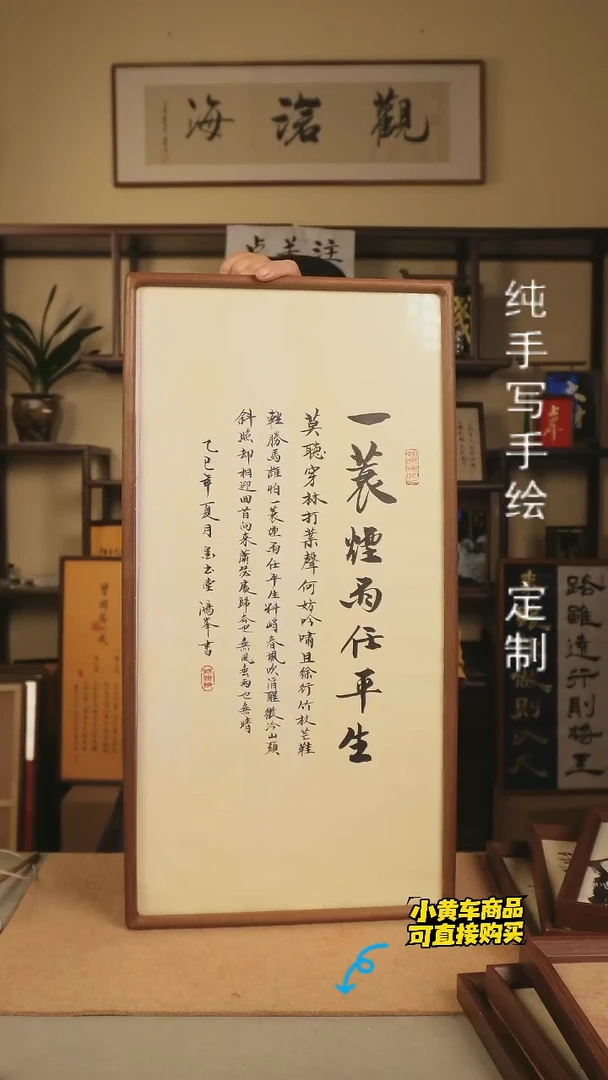 觀滄海
点关注
一蓑煙雨任平生
莫聽穿林打葉聲何妨吟嘯且徐行竹杖芒鞋
輕勝馬誰怕一蓑煙雨任平生料峭春風吹酒醒微冷山頭
斜照却相迎回首向來蕭瑟處歸去也無風雨也無晴
乙巳年夏月
鴻峯書
纯手写手绘
定制
路雖遠行則將至
小黄车商品
可直接购买